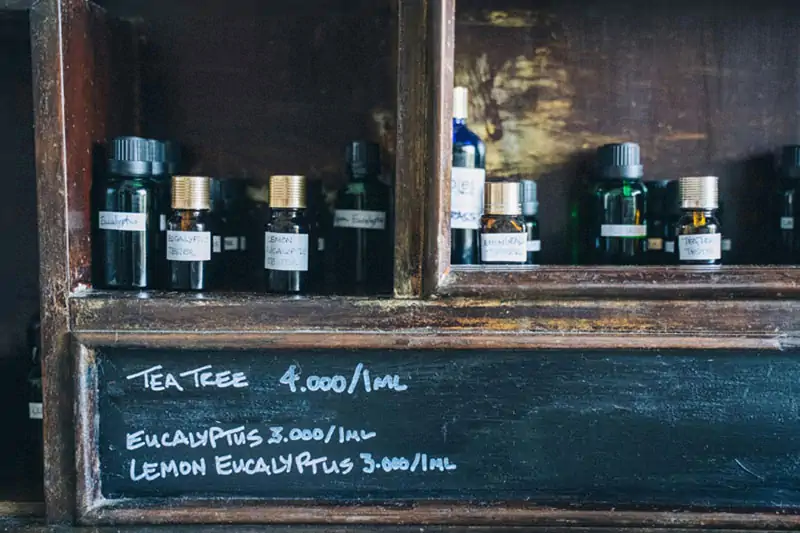 Eucalyptus
EUCALYPTUS
TESTER
LEMON
EUCALYPTUS
TESTER
TEA TREE 4.000/1ML
EUCALYPTUS 3.000/1ML
LEMON EUCALYPTUS 3.000/1ML